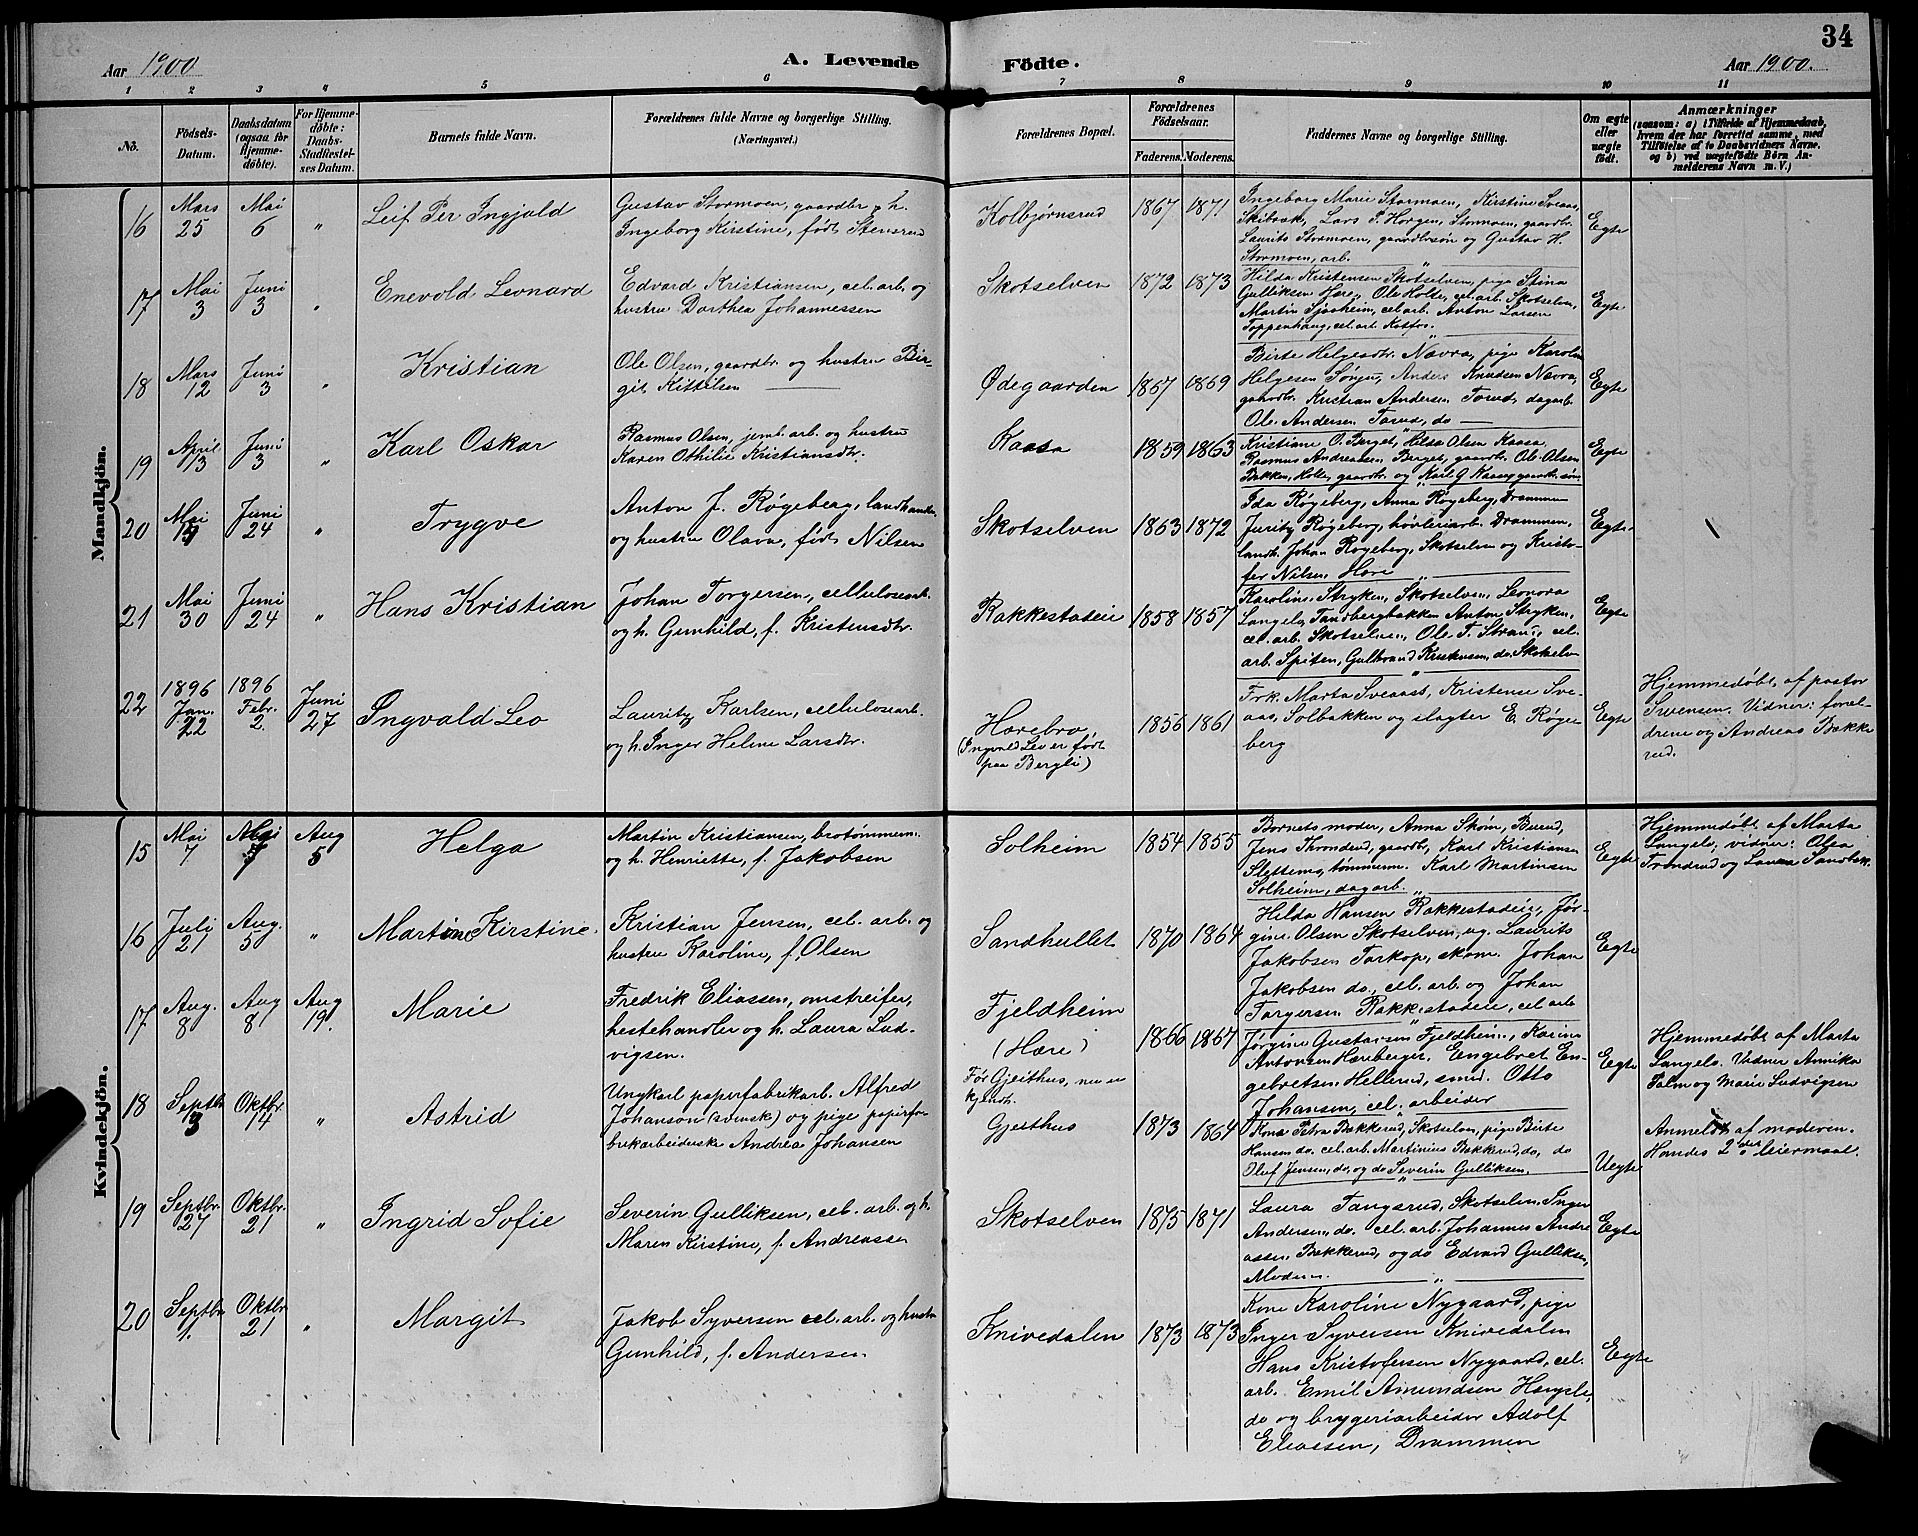 34
Aar 1900
A. Levende Födte.
Aar 1900.
1 2 3 4 5 6 7 8 9 10 11
No.
Födsels-Datum.
Daabsdatum (ogsaa for Hjemmedöbte).
For Hjemmedöbte: Daabs-Stadfestelses Datum.
Barnets fulde Navn.
Forældrenes fulde Navne og borgerlige Stilling. (Næringsvei.)
Forældrenes Bopæl.
Forældrenes Födselsaar.
Faderens. Moderens.
Faddernes Navne og borgerlige Stilling.
Om ægte eller uægte födt.
Anmærkninger
(saasom: a) i Tilfælde af Hjemmedaab, hvem der har forrettet samme, med Tilföielse af to Daabsvidners Navne. og b) ved uægtefödte Börn Anmelderens Navn m. V.)
Mandkjön.
16 Mars 25 Mai 6 " Leif Per Ingjald
Gustav Stormoen, gaardbr. og h.
Ingeborg Kirstine, født Stensrud
Kolbjørnsrud 1867 1871
Ingeborg Marie Stormoen, Kirstine Sveaas,
Skibrak, Lars P. Horgen, Stormoen, gaardbr.
Laurits Stormoen, gaardbrsøn og Gustav H.
Stormoen, arb.
Egte
17 Mai 3 Juni 3 " Enevold Leonard
Edvard Kristiansen, cel. arb. og
hustru Dorthea Johannessen
Skotselven 1872 1873
Hilda Kristensen Skotselven, pige Stina
Gulliksen Hære, Ole Holte, cel. arb. Skotselven,
Martin Sjaaheim, cel. arb. Anton Larsen
Toppenhaug, cel. arb. Kosfos.
Egte
18 Mars 12 Juni 3 " Kristian
Ole Olsen, gaardbr. og hustru Bir-
git Kittilsen
Ødegaarden 1867 1869
Birte Helgesdtr. Navra, pige Karoline
Helgesen, Anders Knudsen Navra,
gaardbr. Kristian Andersen Torud, dagarb.
Ole Andersen Torud, do
Egte
19 April 13 Juni 3 " Karl Oskar
Rasmus Olsen, jernb. arb. og hustru
Karen Othilie Kristiansdtr.
Kaasa 1859 1863
Kristiane O. Berget, Hilda Olsen Kaasa,
Rasmus Andreassen Berget, gaardbr. Ole Olsen
Bakken, Holte, gaardbr. og Karl G. Kaasa gaardbr. søn
Egte
20 Mai 19 Juni 24 " Trygve
Anton J. Røgeberg, landhandler
og hustru Olava, født Nilsen
Skotselven 1863 1872
Ida Røgeberg, Anna Røgeberg, Drammen
Juritz Røgeberg, høvleriarb. Drammen,
landh. Johan Røgeberg, Skotselven og Kristo-
fer Nilsen, Hære
Egte.
21 Mai 30 Juni 24 " Hans Kristian
Johan Torgersen, cellulosearb.
og h. Gunhild, f. Kristensdtr.
Rakkestadeie 1858 1857
Karoline Stryken, Skotselven, Leonora
Langelo, Tandbergbakken, Anton Stryken,
cel. arb. Skotselven, Ole T. Strand, cel.
arb. Spiten, Gulbrand Kristensen, do. Skotselven
Egte
22 1896 Jan. 22 1896 Febr. 2. Juni 27 Ingvald Leo
Lauritz Karlsen, cellulosearb.
og h. Inger Helene Larsdtr.
Hærebro
(Ingvald Leo er født
paa Bergli)
1856 1861
Frk. Marta Sveaass, Kristense Sve-
aas, Solbakken og slagter E. Røge-
berg
Egte
Hjemmedøbt af pastor
Svensen. Vidner: foræl-
drene og Andreas Bække-
rud.
Kvindekjön.
15 Mai 7 Mai 7 Aug 5 Helga
Martin Kristiansen, brotømmerm.
og h. Henriette, f. Jakobsen
Solheim 1854 1855
Barnets moder, Anna Skøin, Burud,
Jens Throndrud, gaardb, Karl Kristiansen
Slettemo, tømmerm. Karl Martinsen
Solheim, dagarb.
Egte
Hjemmedøbt af Marta
Langelo, vidner: Olea
Trondrud og Laura Sandbæk.
16 Juli 21 Aug. 5 " Martine Kirstine.
Kristian Jensen, cel. arb. og
hustru Karoline, f. Olsen
Sandhullet 1870 1864
Hilda Hansen Rakkestadeie, Jør-
gine Olsen Skotselven, ug. Laurits
Jakobsen Torkop, skom. Johan
Jakobsen do, cel. arb. og Johan
Torgersen Rakkestadeie, cel arb
Egte
17 Aug. 8 Aug 8 Aug 19. Marie
Fredrik Eliassen, omstreifer,
hestehandler og h. Laura Lud-
vigsen.
Fjeldheim
(Hære)
1866 1867
Jørgine Gustavsen Fjeldheim, Karine
Antonsen Hæreberget, Engebret En-
gebretsen Hellerud, smed. Otto
Johansen, cel. arbeider
Egte
Hjemmedøbt af Marta
Langelo. Vidner Annika
Palm og Marie Ludvigsen
18 Septbr 13 Oktbr 14 " Astrid
Ungkarl papirfabrikarb. Alfred
Johanson (svensk) og pige papirfa-
brikarbeiderske Andrea Johansen
Før Gjeithus, nu u-
kjendt.
Gjeithus 1873 1864
Kone Petra Bækkerud, Skotselven, pige Birte
Hansen do. cel. arb. Martinius Bækkerud, do, do
Oluf Jensen, do, og do Severin Gulliksen.
Uegte
Anmeldt af moderen.
Hendes 2det leiermaal.
19 Septbr. 27 Oktbr. 21 " Ingrid Sofie
Severin Gulliksen, cel. arb. og h.
Maren Kirstine, f. Andreassen
Skotselven 1875 1871
Laura Tangsrud, Skotselven, Inger
Andersen, do. cel. arb. Johannes Andre-
assen Bækkerud, og do Edvard Gulliksen,
Modum.
Egte
20 Septbr. 1. Oktbr 21 " Margit
Jakob Syversen cel. arb. og hustru
Gunhild, f. Andersen
Knivedalen 1873 1873
Kone Karoline Nygaard, pige
Inger Syversen Knivedalen
Hans Kristofersen Nygaard, cel.
arb. Emil Amundsen,
do og bryggeriarbeider Adolf
Eliassen, Drammen
Egte